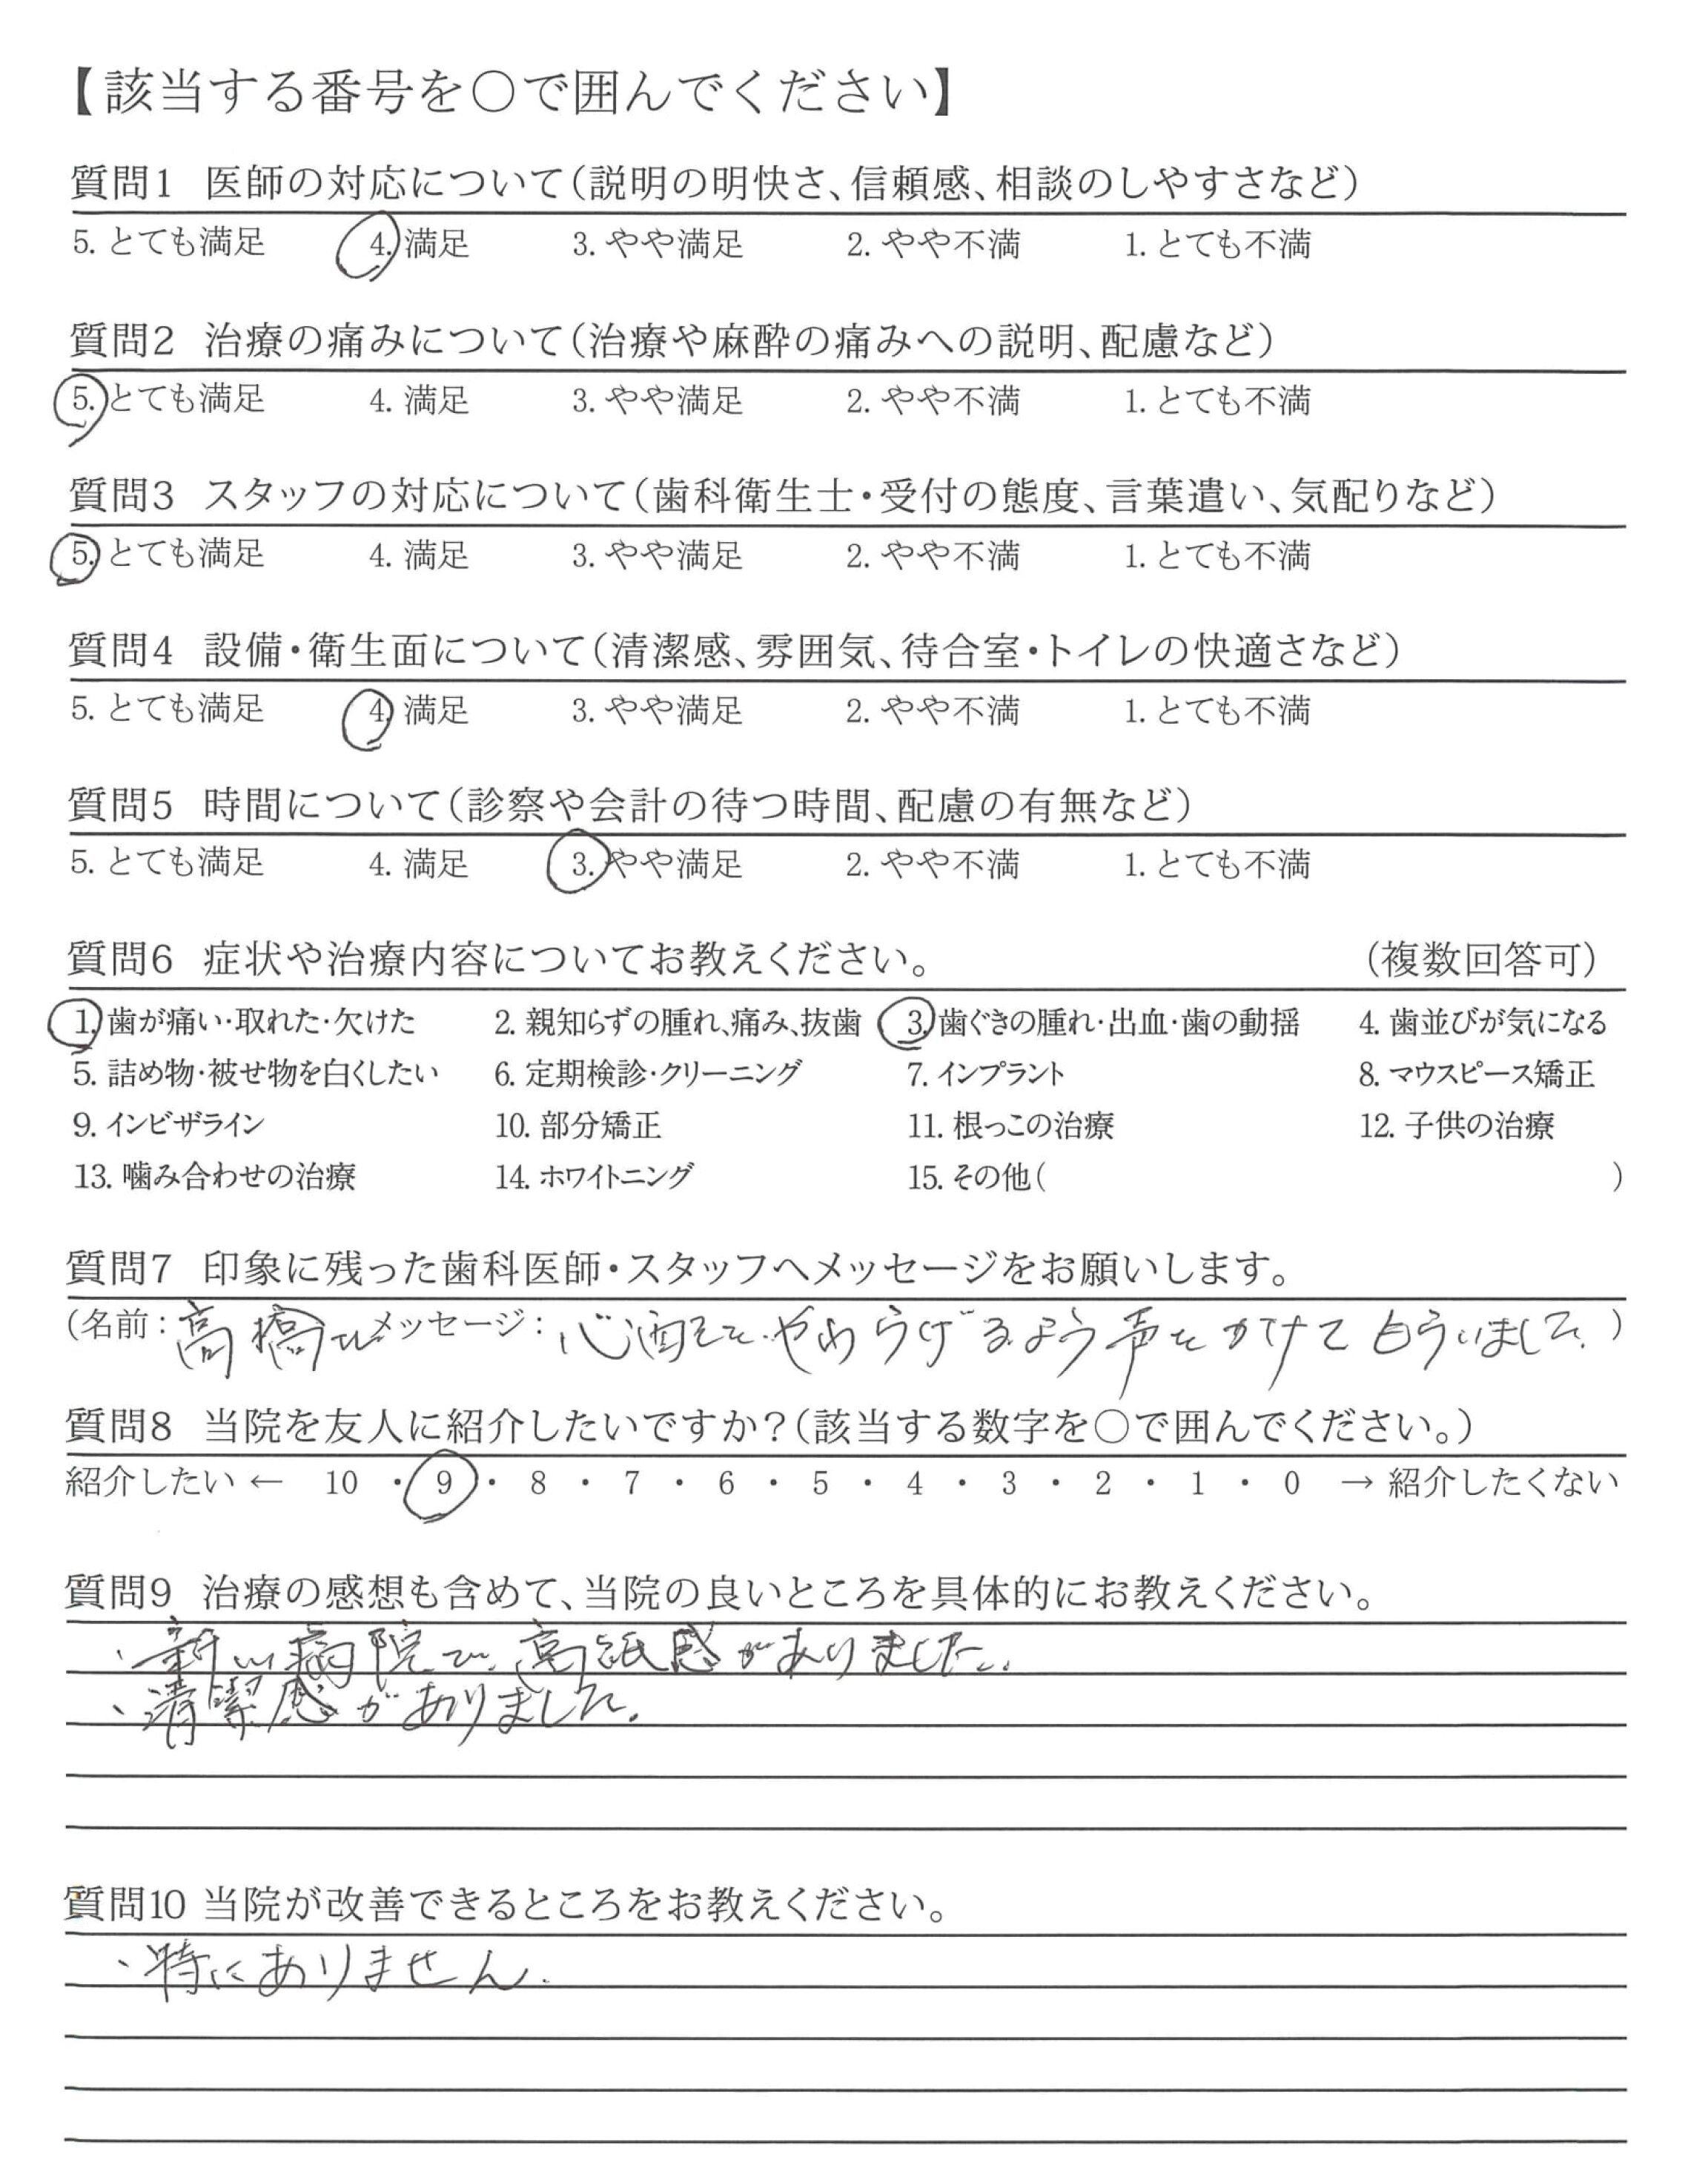 【該当する番号を○で囲んでください】
質問1 医師の対応について(説明の明快さ、信頼感、相談のしやすさなど)
5. とても満足 4. 満足 3. やや満足 2. やや不満 1. とても不満
質問2 治療の痛みについて(治療や麻酔の痛みへの説明、配慮など)
5. とても満足 4. 満足 3. やや満足 2. やや不満 1. とても不満
質問3 スタッフの対応について(歯科衛生士・受付の態度、言葉遣い、気配りなど)
5. とても満足 4. 満足 3. やや満足 2. やや不満 1. とても不満
質問4 設備・衛生面について(清潔感、雰囲気、待合室・トイレの快適さなど)
5. とても満足 4. 満足 3. やや満足 2. やや不満 1. とても不満
質問5 時間について(診察や会計の待つ時間、配慮の有無など)
5. とても満足 4. 満足 3. やや満足 2. やや不満 1. とても不満
質問6 症状や治療内容についてお教えください。 (複数回答可)
1. 歯が痛い・取れた・欠けた 2. 親知らずの腫れ、痛み、抜歯 3. 歯ぐきの腫れ・出血・歯の動揺 4. 歯並びが気になる
5. 詰め物・被せ物を白くしたい 6. 定期検診・クリーニング 7. インプラント 8. マウスピース矯正
9. インビザライン 10. 部分矯正 11. 根っこの治療 12. 子供の治療
13. 噛み合わせの治療 14. ホワイトニング 15. その他( )
質問7 印象に残った歯科医師・スタッフへメッセージをお願いします。
(名前: 高橋 メッセージ: 心配 やわらげるよう声をかけてもらいました。)
質問8 当院を友人に紹介したいですか?(該当する数字を○で囲んでください。)
紹介したい ← 10 ・ 9 ・ 8 ・ 7 ・ 6 ・ 5 ・ 4 ・ 3 ・ 2 ・ 1 ・ 0 → 紹介したくない
質問9 治療の感想も含めて、当院の良いところを具体的にお教えください。
・新しい病院で、高級感がありました。
・清潔感がありました。
質問10 当院が改善できるところをお教えください。
・特にありません。